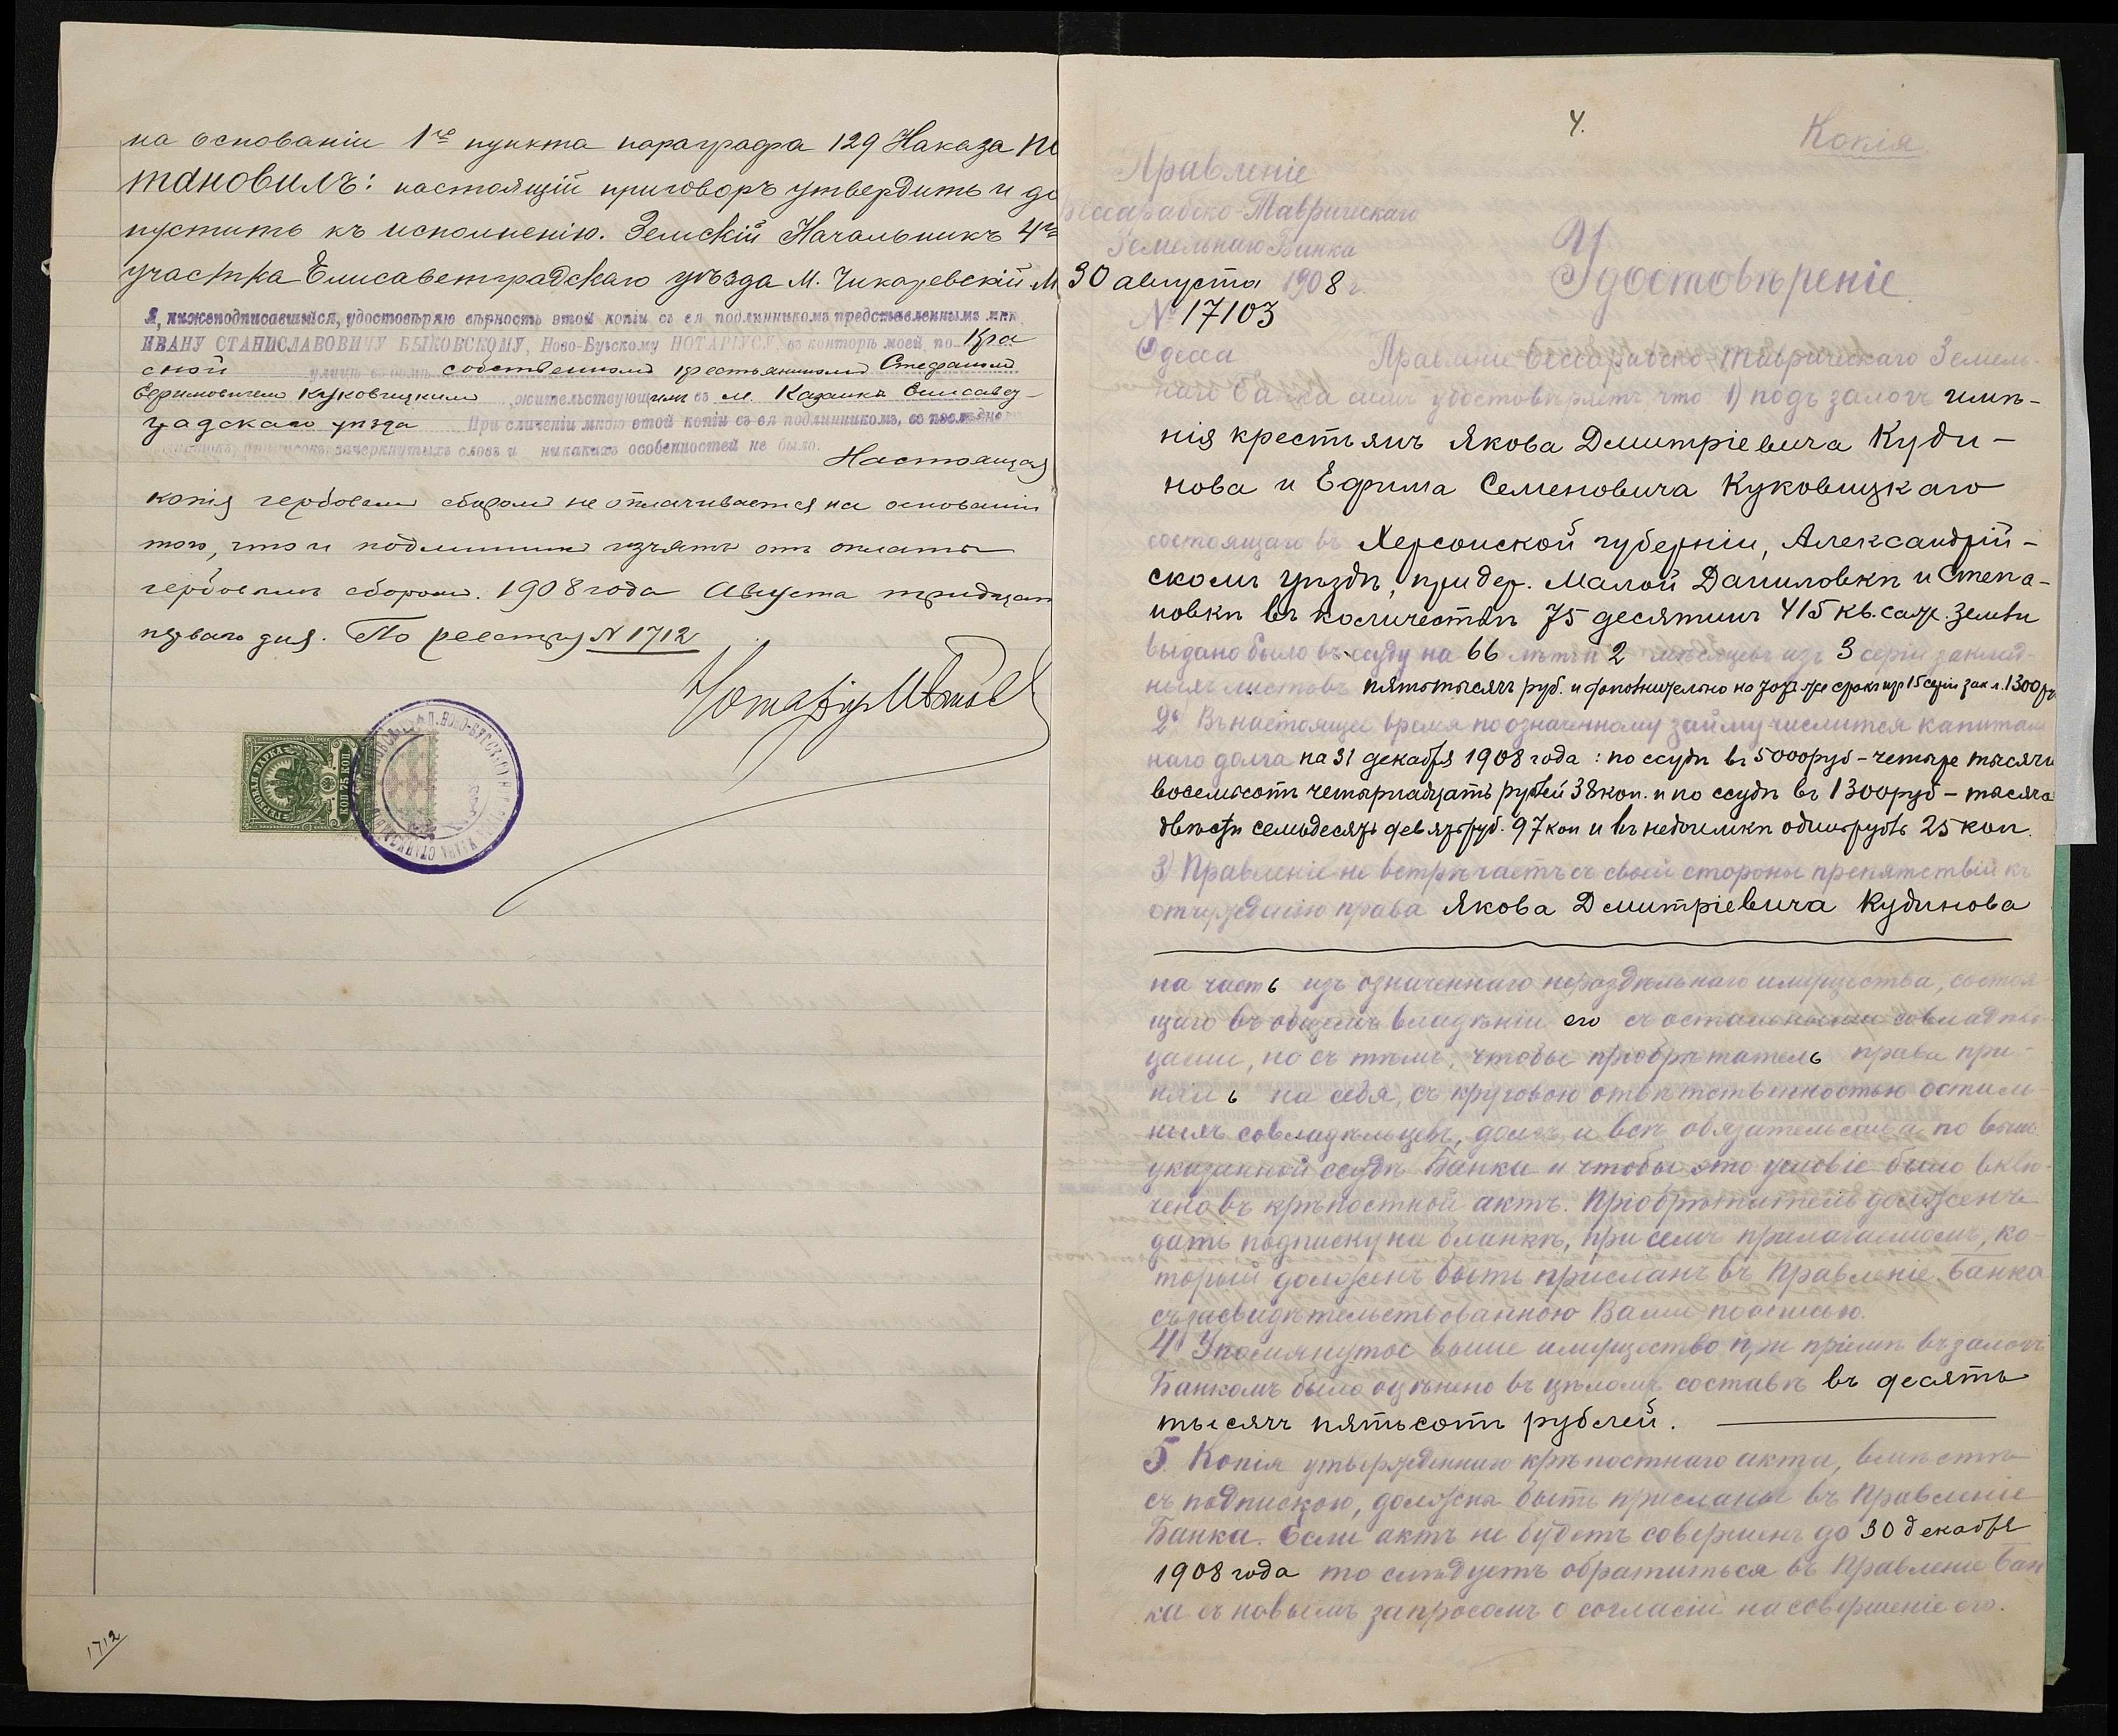 на основаніи 1го пункта параграфа 129 Наказа по
становилъ: настоящій приговоръ утвердить и до
пустить къ исполненію. Земскій Начальникъ 4го
участка Елисаветградскаго уѣзда М. Чикаревскій М
Я, нижеподписавшійся, удостовѣряю вѣрность этой копіи съ ея подлинникомъ представленнымъ мнѣ
ИВАНУ СТАНИСЛАВОВИЧУ БЫКОВСКОМУ, Ново-Бугскому НОТАРІУСУ, въ конторѣ моей по Кра
сной улицѣ въ домѣ собственномъ крестьяниномъ Стефаномъ
Ефимовичемъ Куковицкимъ жительствующимъ въ м. Казанкѣ Елисавет-
градскаго уѣзда При сличеніи мною этой копіи съ ея подлинникомъ, въ послѣднемъ
приписокъ, зачеркнутыхъ словъ и никакихъ особенностей не было. Настоящая
копія гербовымъ сборомъ не оплачивается на основаніи
того, что и подлинникъ изъятъ отъ оплаты
гербовымъ сборомъ. 1908 года Августа тридцать
перваго дня. По реестру N 1712
Нотаріусъ
ГЕРБОВАЯ МАРКА
75 КОП
1712
4.
Копія.
Правленіе
Бессарабско-Таврическаго
Земельнаго Банка
30 августа 1908 г.
№ 17103
Одесса
Удостовѣреніе.
Правленіе Бессарабско-Таврическаго Земель-
наго Банка симъ удостовѣряетъ что 1) подъ залогъ имѣ-
нія крестьянъ Якова Дмитріевича Куди-
нова и Ефима Семеновича Куковицкаго
состоящаго въ Херсонской губерніи, Александрій-
скомъ уѣздѣ, при дер. Малой Даниловкѣ и Степа-
новкѣ въ количествѣ 75 десятинъ 415 кв. саж. земли
выдано было въ ссуду на 66 лѣтъ и 2 мѣсяцевъ изъ 3 серіи заклад-
ныхъ листовъ пять тысячъ руб. и дополнительно на тотъ же срокъ изъ 15 серіи зак. л. 1300 р.
2) Въ настоящее время по означенному займу числится капиталь
наго долга на 31 декабря 1908 года: по ссудѣ въ 5000 руб – четыре тысячи
восемьсотъ четырнадцать рублей 38 коп. и по ссудѣ въ 1300 руб – тысяча
двѣсти семьдесятъ девять руб. 97 коп и въ недоимкѣ одинъ рубль 25 коп.
3) Правленіе не встрѣчаетъ съ своей стороны препятствій къ
отчужденію права Якова Дмитріевича Кудинова
на часть изъ означеннаго нераздѣльнаго имущества, состоя
щаго въ общемъ владѣніи его съ остальными совладѣль
цами, но съ тѣмъ, чтобы пріобрѣтатель права при-
нялъ на себя, съ круговою отвѣтственностью осталь-
ныхъ совладѣльцевъ, долгъ и всѣ обязательства по выше
указанной ссудѣ Банка и чтобы это условіе было вклю-
чено въ крѣпостной актъ. Пріобрѣтатель долженъ
дать подписку на бланкѣ, при семъ прилагаемомъ, ко-
торый долженъ быть присланъ въ Правленіе Банка
съ засвидѣтельствованною Вами подписью.
4) Упомянутое выше имущество при пріемѣ въ залогъ
Банкомъ было оцѣнено въ цѣломъ составѣ въ десять
тысячъ пятьсотъ рублей.
5. Копія утвержденнаго крѣпостнаго акта, вмѣстѣ
съ подпискою, должна быть прислана въ Правленіе
Банка. Если актъ не будетъ совершенъ до 30 декабря
1908 года то слѣдуетъ обратиться въ Правленіе Бан
ка съ новымъ запросомъ о согласіи на совершеніе его.